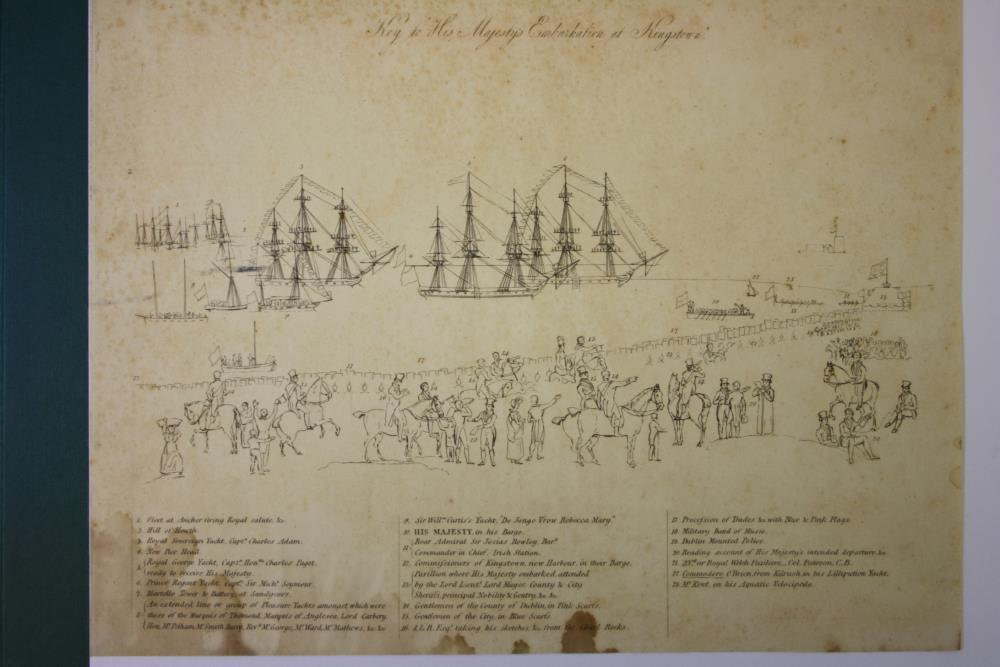 Key to His Majesty's Embarkation at Kingstown.
1. Fleet at Anchor firing Royal salute. &c.
2. Hill of Howth.
3. Royal Sovereign Yacht, Captn. Charles Adam.
4. New Pier Head.
5. Royal George Yacht, Captn. Honble. Charles Paget.
ready to receive His Majesty.
6. Prince Regent Yacht, Captn. Sir Michl. Seymour.
7. Martello Tower & Battery, at Sandycove.
8. An extended line or group of Pleasure Yachts amongst which were
those of the Marquis of Thomond, Marquis of Anglesea, Lord Carbery,
Hon. Mr. Pelham, Mr. Smith Barry, Revd. Mr. George, Mr. Ward, Mr. Mathews, &c. &c.
9. Sir Willm. Curtis's Yacht, "De Jonge Vrow Rebecca Mary."
10. HIS MAJESTY, in his Barge.
11. Rear Admiral Sir Josias Rowley, Bart.
Commander in Chief, Irish Station.
12. Commissioners of Kingstown, new Harbour, in their Barge.
13. Pavillion where His Majesty embarked, attended
by the Lord Lieutt. Lord Mayor, County & City
Sheriffs, principal Nobility & Gentry, &c. &c.
14. Gentlemen of the County of Dublin, in Pink Scarfs.
15. Gentlemen of the City, in Blue Scarfs.
16. I.L.R. Esqr. taking his sketches, &c. from the Rocks.
17. Procession of Trades &c. with Blue & Pink Flags.
18. Military Band of Music.
19. Dublin Mounted Police.
20. Reading account of His Majesty's intended departure, &c.
21. 23rd. or Royal Welch Fuzileers, Col. Pearson, C.B.
22. Commodore O'Brien, from Kilrush, in his Lilliputian Yacht.
23. Mr. Kent, on his Aquatic Velocipede.